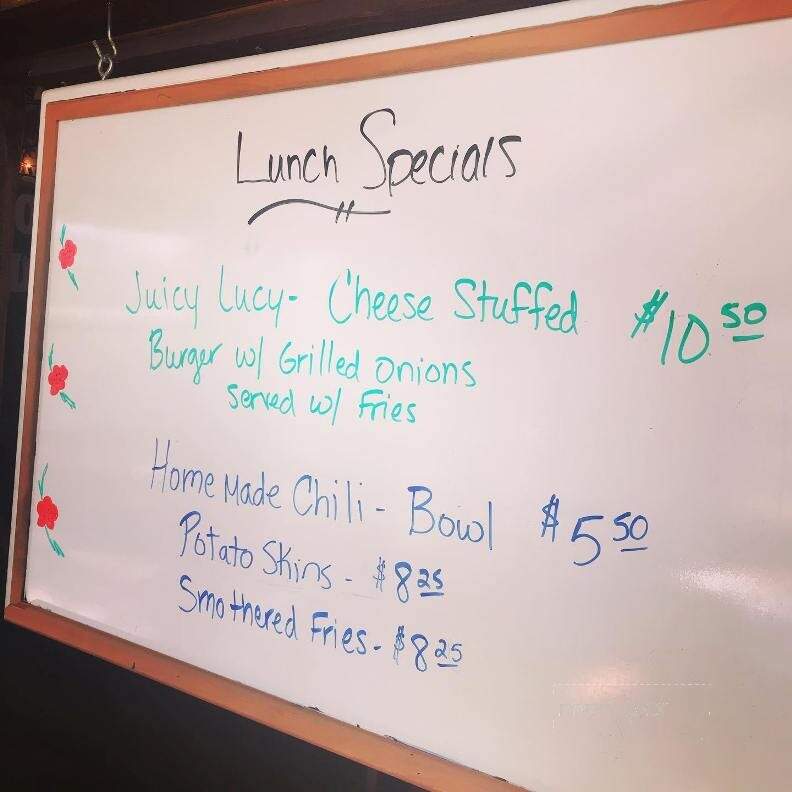 Lunch Specials
Juicy Lucy- Cheese Stuffed $10.50
Burger w/ Grilled onions
Served w/ Fries
Home Made Chili - Bowl $5 50
Potato Skins - $8 25
Smothered Fries - $8 25